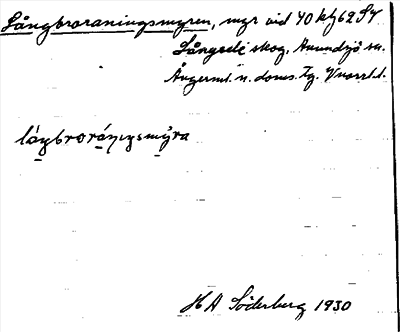 Långbroraningsmyren, myr vid 40 kbf 62 SV
Långsele skog, Anundsjö sn.
Ångerml. n. doms. tg. Vnorrl. l.
lóŋbrorániŋsmýra
H A Söderberg 1930